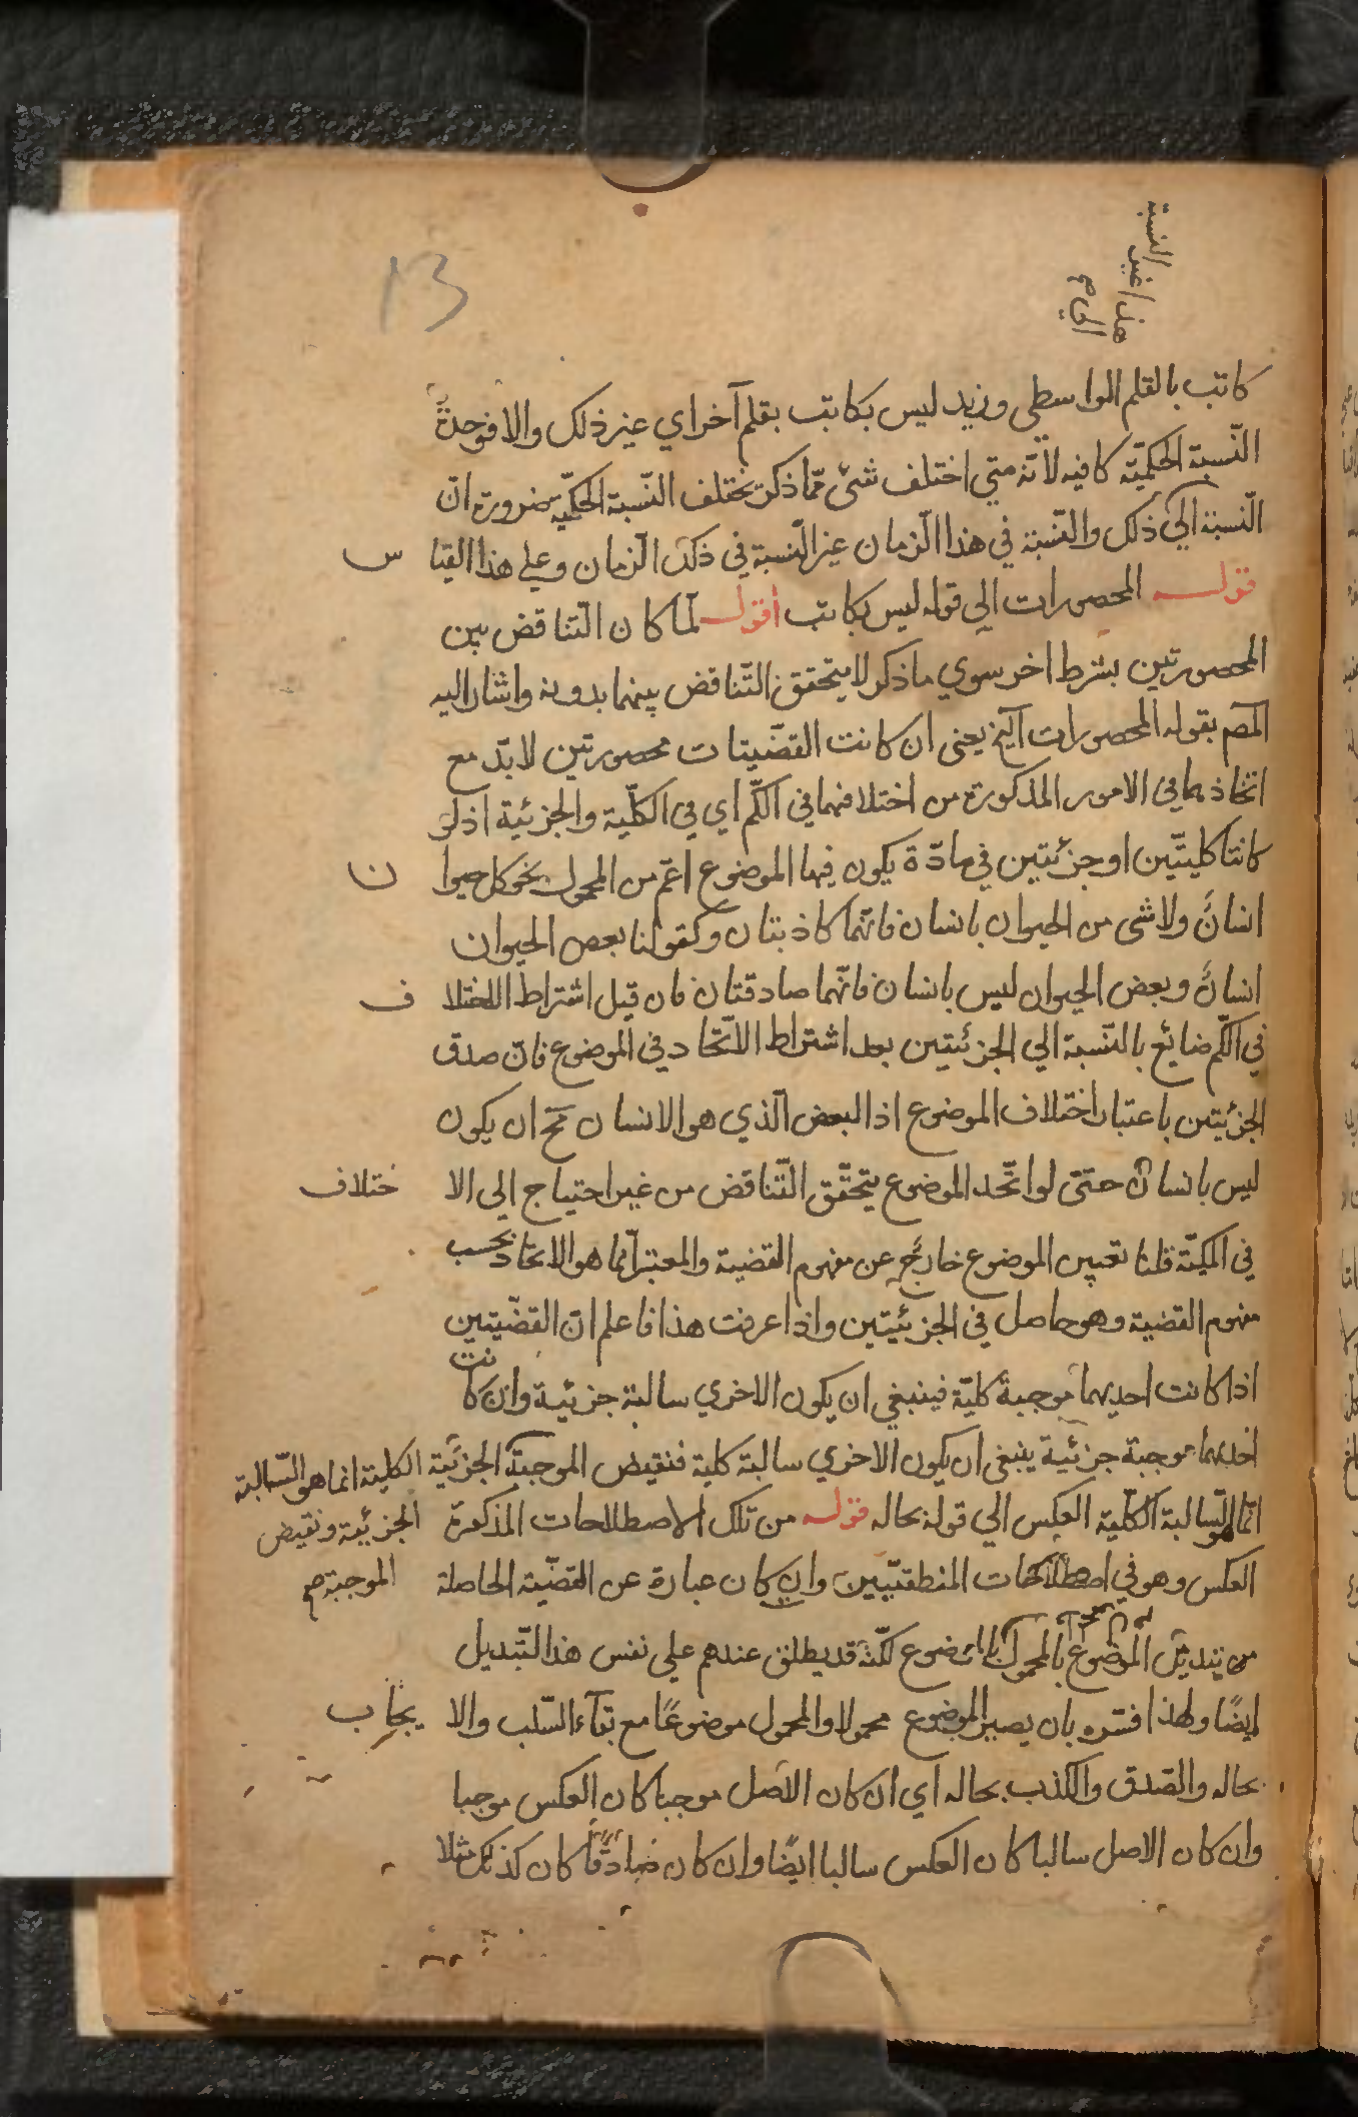 13
النسبة
هذا غير
الي صح
كاتب بالقلم الواسطي وزيد ليس بكاتب بقلم آخر اي غير ذلك والا فوحدة
النّسبة الحكميّة كافيه لأنّه متي اختلف شئ ممّا ذكر يختلف النّسبة الحكميّه ضرورة انّ
النّسبة الي ذلك والنّسبة في هذا الزمان غير النّسبة في ذلك الزمان وعلي هذا القياس
قوله المحصورات الي قوله ليس بكاتب أقول لمّا كان التّناقض بين
المحصورتين بشرط اخر سوي ما ذكر لا يتحقق التّناقض بينهما بدونه واشار اليه
المصم بقوله المحصورات آلخ يعني ان كانت القضّيتات محصورتين لا بدّ مع
اتخاذهما في الامور المذكورة من اختلافهما في الكّم اي في الكلّية والجزئية اذ لو
كانتا كليتّين او جزئيتين في مادّة يكون فيها الموضوع اعّم من المحمول نحو كل حيوان
انسانٌ ولا شى من الحيوان بانسان فانّهما كاذبتان وكقولنا بعض الحيوان
انسانٌ وبعض الحيوان ليس بانسان فانّهما صادقتان فان قيل اشتراط الاختلاف
في الكّم ضائع بالنّسبة الي الجزئيتين بعد اشتراط الاتّحاد في الموضوع فانّ صدق
الجزئيتين باعتبار اختلاف الموضوع اذ البعض الّذي هو الانسان تمح ان يكون
ليس بانسان حتّى لو اتّحد الموضوع يتحقّق التّناقض من غير احتياج الي الاختلاف
في الكميّة قلنا تعيين الموضوع خارجٌ عن مفهوم القضية والمعتبر انّما هو الاتحاد بحسب
مفهوم القضية وهو حاصل في الجزئيتين واذا عرفت هذا فاعلم انّ القضّيتين
اذا كانت احديهما موجبةً كليّة فينبغي ان يكون الاخري سالبة جزئية وان كانت
احديهما موجبة جزئية ينبغي ان يكون الاخري سالبة كلية فنقيض الموجبة الجزئية
الكلية انما هو السّالبة
الجزئية ونقيض
الموجبة صح
انّما هو السّالبة الكلّية العكس الي قوله بحاله قوله من تلك الاصطلاحات المذكورة
العكس وهو في اصطلاحات المنطقيّين وان كان عبارة عن القضّية الحاصلة
من تبديل الموضوع بالمحمول بالموضوع لكنّه قد يطلق عندهم علي نفس هذا التّبديل
ايضًا ولهذا فسّره بان يصير الموضوع محمولا والمحمول موضوعًا مع بقآء السّلب والايجاب
بحاله والصّدق والكذب بحاله اي ان كان الاصل موجبا كان العكس موجبا
وان كان الاصل سالبا كان العكس سالبا ايضًا وان كان صادقًا كان كذلك مثلا